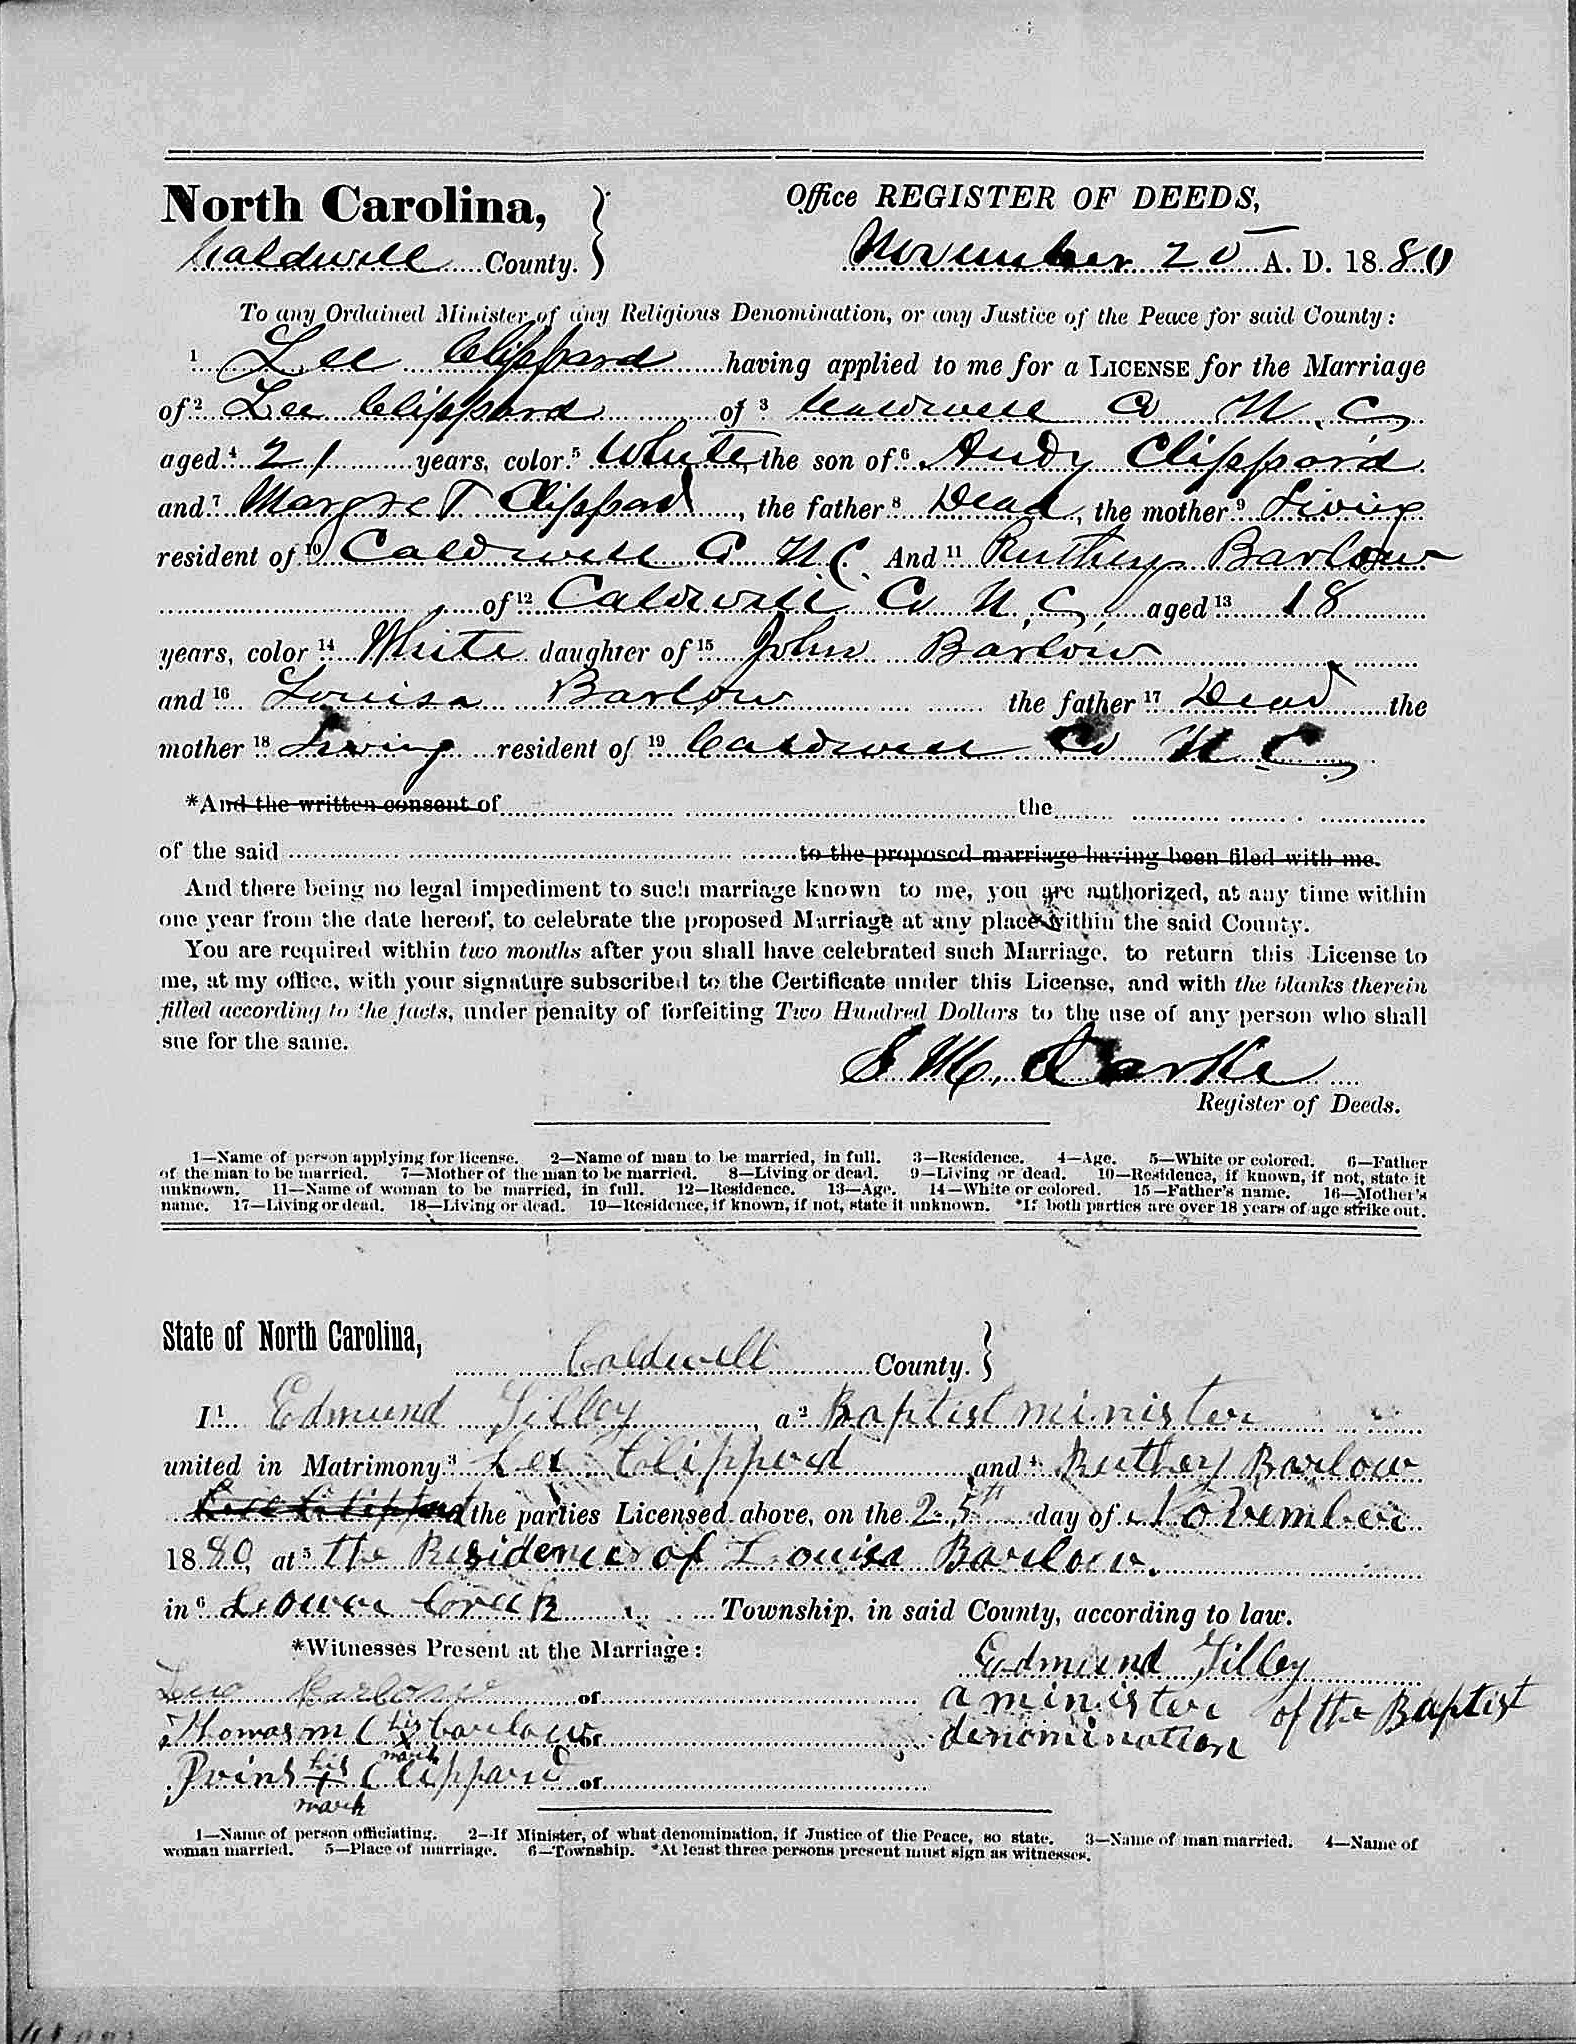 North Carolina,
Caldwell County.
Office REGISTER OF DEEDS,
November 20 A. D. 1880
To any Ordained Minister of any Religious Denomination, or any Justice of the Peace for said County:
1 Lee Clippard having applied to me for a LICENSE for the Marriage
of 2 Lee Clippard of 3 Caldwell Co N. C,
aged 4 21 years, color 5 White, the son of 6 Andy Clippard
and 7 Margret Clippard, the father 8 Dead, the mother 9 Living
resident of 10 Caldwell Co N. C. And 11 Ruthey Barlow
of 12 Caldwell Co N. C, aged 13 18
years, color 14 White daughter of 15 John Barlow
and 16 Louisa Barlow the father 17 Dead the
mother 18 Living resident of 19 Caldwell Co N C,
*And the written consent of the
of the said to the proposed marriage having been filed with me.
And there being no legal impediment to such marriage known to me, you are authorized, at any time within
one year from the date hereof, to celebrate the proposed Marriage at any place within the said County.
You are required within two months after you shall have celebrated such Marriage, to return this License to
me, at my office, with your signature subscribed to the Certificate under this License, and with the blanks therein
filled according to the facts, under penalty of forfeiting Two Hundred Dollars to the use of any person who shall
sue for the same.
M. Clarke
Register of Deeds.
1—Name of person applying for license. 2—Name of man to be married, in full. 3—Residence. 4—Age. 5—White or colored. 6—Father
of the man to be married. 7—Mother of the man to be married. 8—Living or dead. 9—Living or dead. 10—Residence, if known, if not, state it
unknown. 11—Name of woman to be married, in full. 12—Residence. 13—Age. 14—White or colored. 15—Father's name. 16—Mother's
name. 17—Living or dead. 18—Living or dead. 19—Residence, if known, if not, state it unknown. *If both parties are over 18 years of age strike out.
State of North Carolina,
Caldwell County.
I 1 Edmund Tilley, a 2 Baptist minister
united in Matrimony 3 Lee Clipperd and 4 Ruthey Barlow
the parties Licensed above, on the 25th day of November
1880, at 5 the Residence of Louisa Barlow.
in 6 Lower Creek Township, in said County, according to law.
*Witnesses Present at the Marriage:
Edmund Tilley
a minister of the Baptist
denomination
Barlow of
Thomas m C his x mark barlow of
his + mark Clippard of
1—Name of person officiating. 2—If Minister, of what denomination, if Justice of the Peace, so state. 3—Name of man married. 4—Name of
woman married. 5—Place of marriage. 6—Township. *At least three persons present must sign as witnesses.